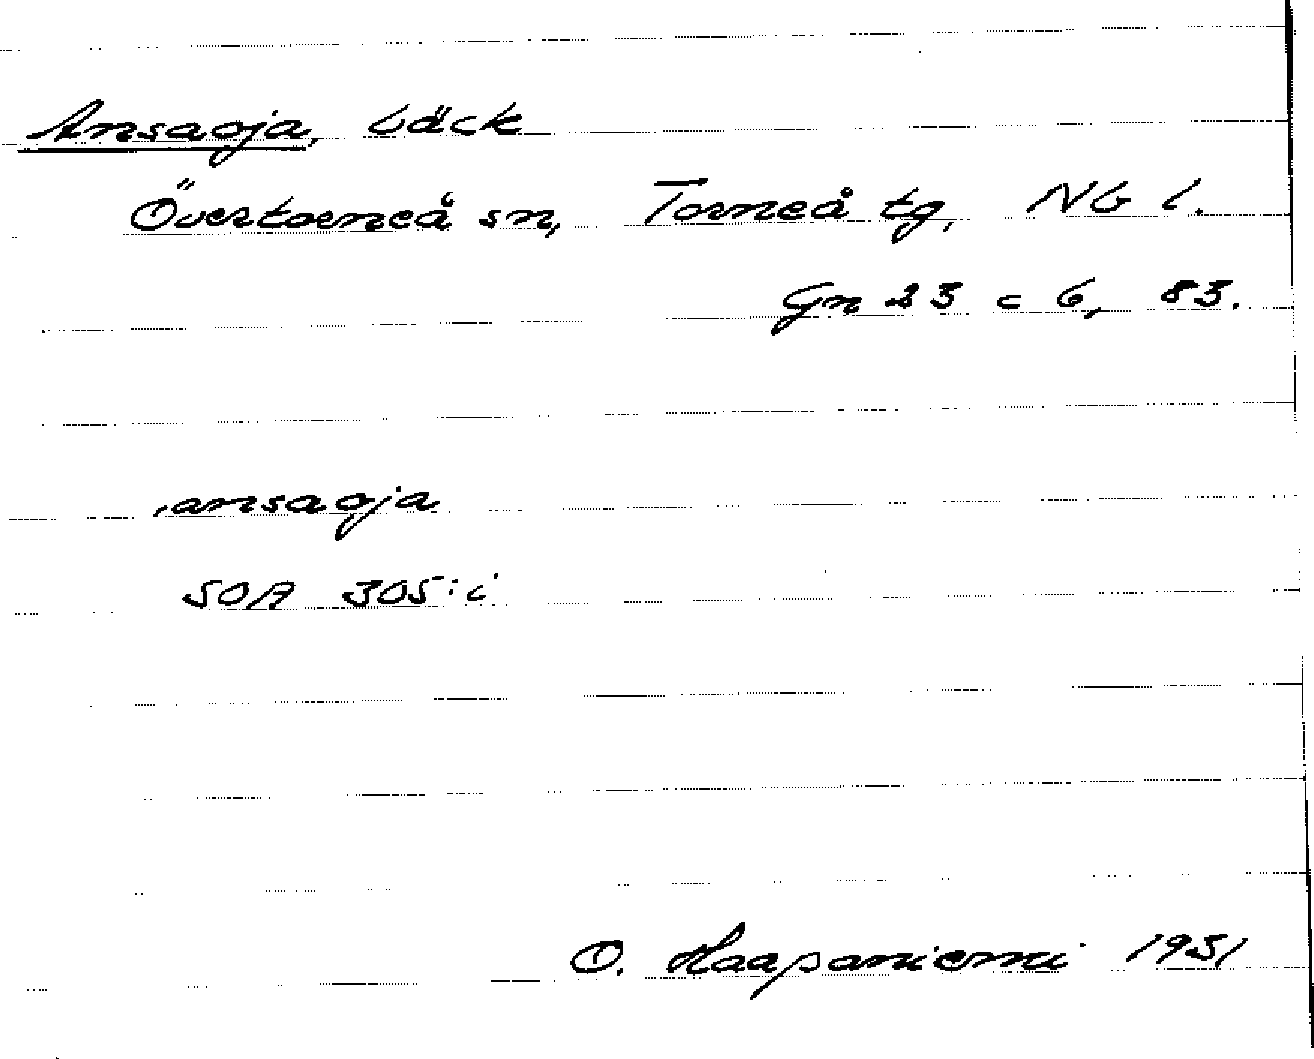 Ansaoja, bäck
Övertorneå sn, Torneå tg, Nb l.
Gn 23 c 6, 83.
ˌansaoja
SOA 305:i
O. Haapaniemi 1951